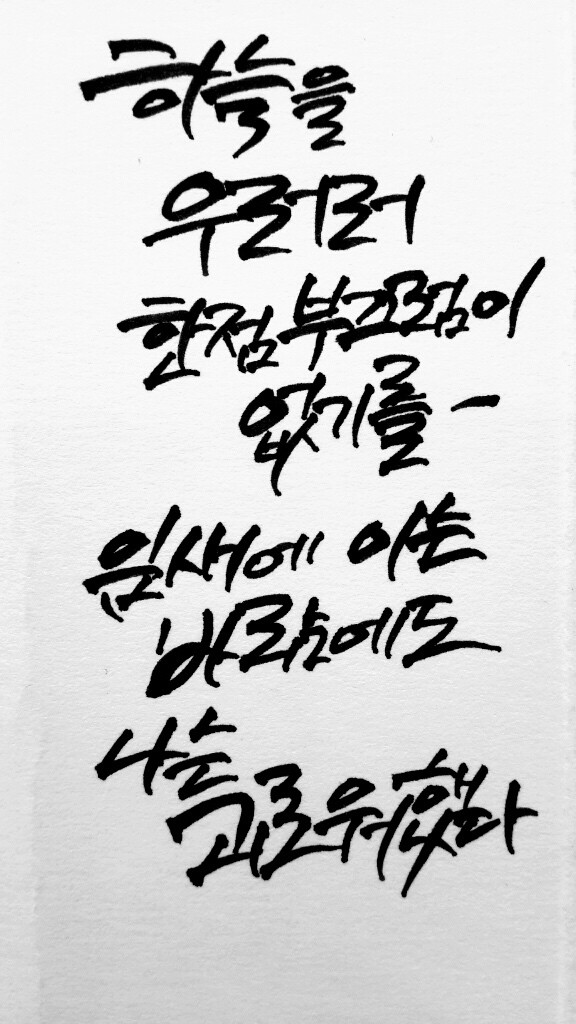 하늘을
우러러
한점 부끄럼이
없기를-
잎새에 이는
바람에도
나는
괴로워했다